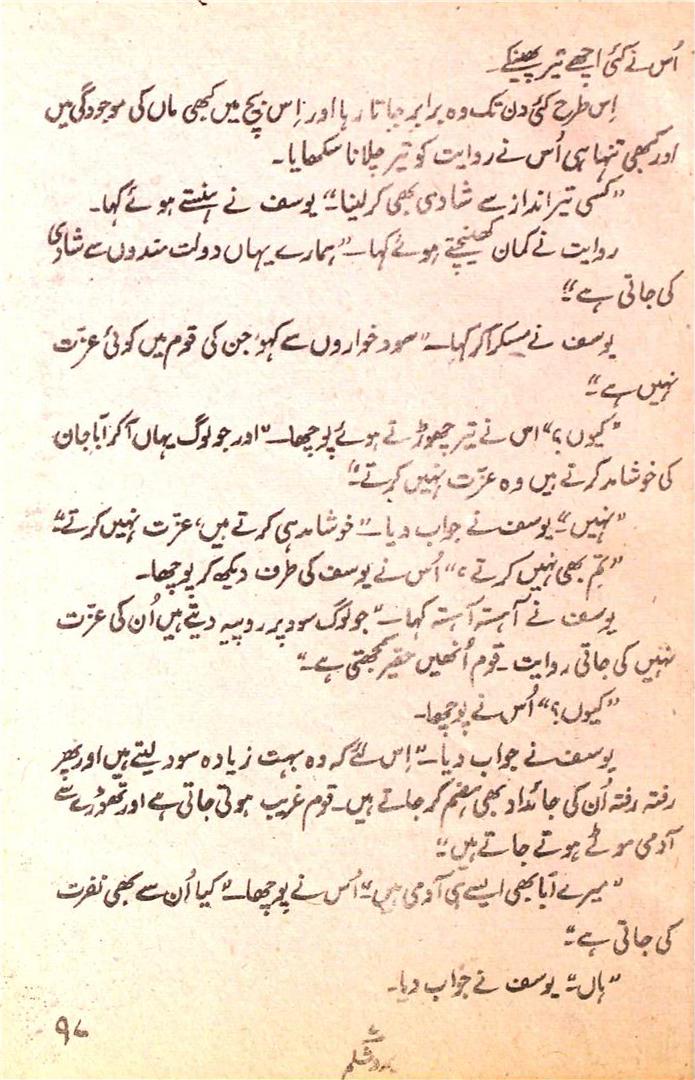 اُس نے کئی اچھے تیر پھینکے۔
اِس طرح کئی دن تک وہ برابر جاتا رہا اور اِس بیچ میں کبھی ماں کی موجودگی میں
اور کبھی تنہا ہی اُس نے روایت کو تیر چلانا سکھایا۔
”کسی تیر انداز سے شادی بھی کر لینا۔“ یوسف نے ہنستے ہوئے کہا۔
روایت نے کمان کھینچتے ہوئے کہا۔ ”ہمارے یہاں دولت مندوں سے شادی
کی جاتی ہے۔“
یوسف نے مسکرا کر کہا۔ ”سود خواروں سے کہو، جن کی قوم میں کوئی عزّت
نہیں ہے۔“
”کیوں؟“ اس نے تیر چھوڑتے ہوئے پوچھا۔ ”اور جو لوگ یہاں آکر اباجان
کی خوشامد کرتے ہیں وہ عزّت نہیں کرتے۔“
”نہیں۔“ یوسف نے جواب دیا۔ ”خوشامد ہی کرتے ہیں، عزّت نہیں کرتے۔“
”تم بھی نہیں کرتے؟“ اُس نے یوسف کی طرف دیکھ کر پوچھا۔
یوسف نے آہستہ آہستہ کہا۔ ”جو لوگ سود پر روپیہ دیتے ہیں اُن کی عزّت
نہیں کی جاتی روایت۔ قوم اُنھیں حقیر سمجھتی ہے۔“
”کیوں؟“ اُس نے پوچھا۔
یوسف نے جواب دیا۔ ”اِس لئے کہ وہ بہت زیادہ سود لیتے ہیں اور پھر
رفتہ رفتہ اُن کی جائداد بھی ہضم کر جاتے ہیں۔ قوم غریب ہوتی جاتی ہے اور تھوڑے سے
آدمی موٹے ہوتے جاتے ہیں۔“
”میرے ابا بھی ایسے ہی آدمی ہیں۔“ اُس نے پوچھا۔ ”کیا اُن سے بھی نفرت
کی جاتی ہے۔“
”ہاں۔“ یوسف نے جواب دیا۔
۹۷
یروشلم